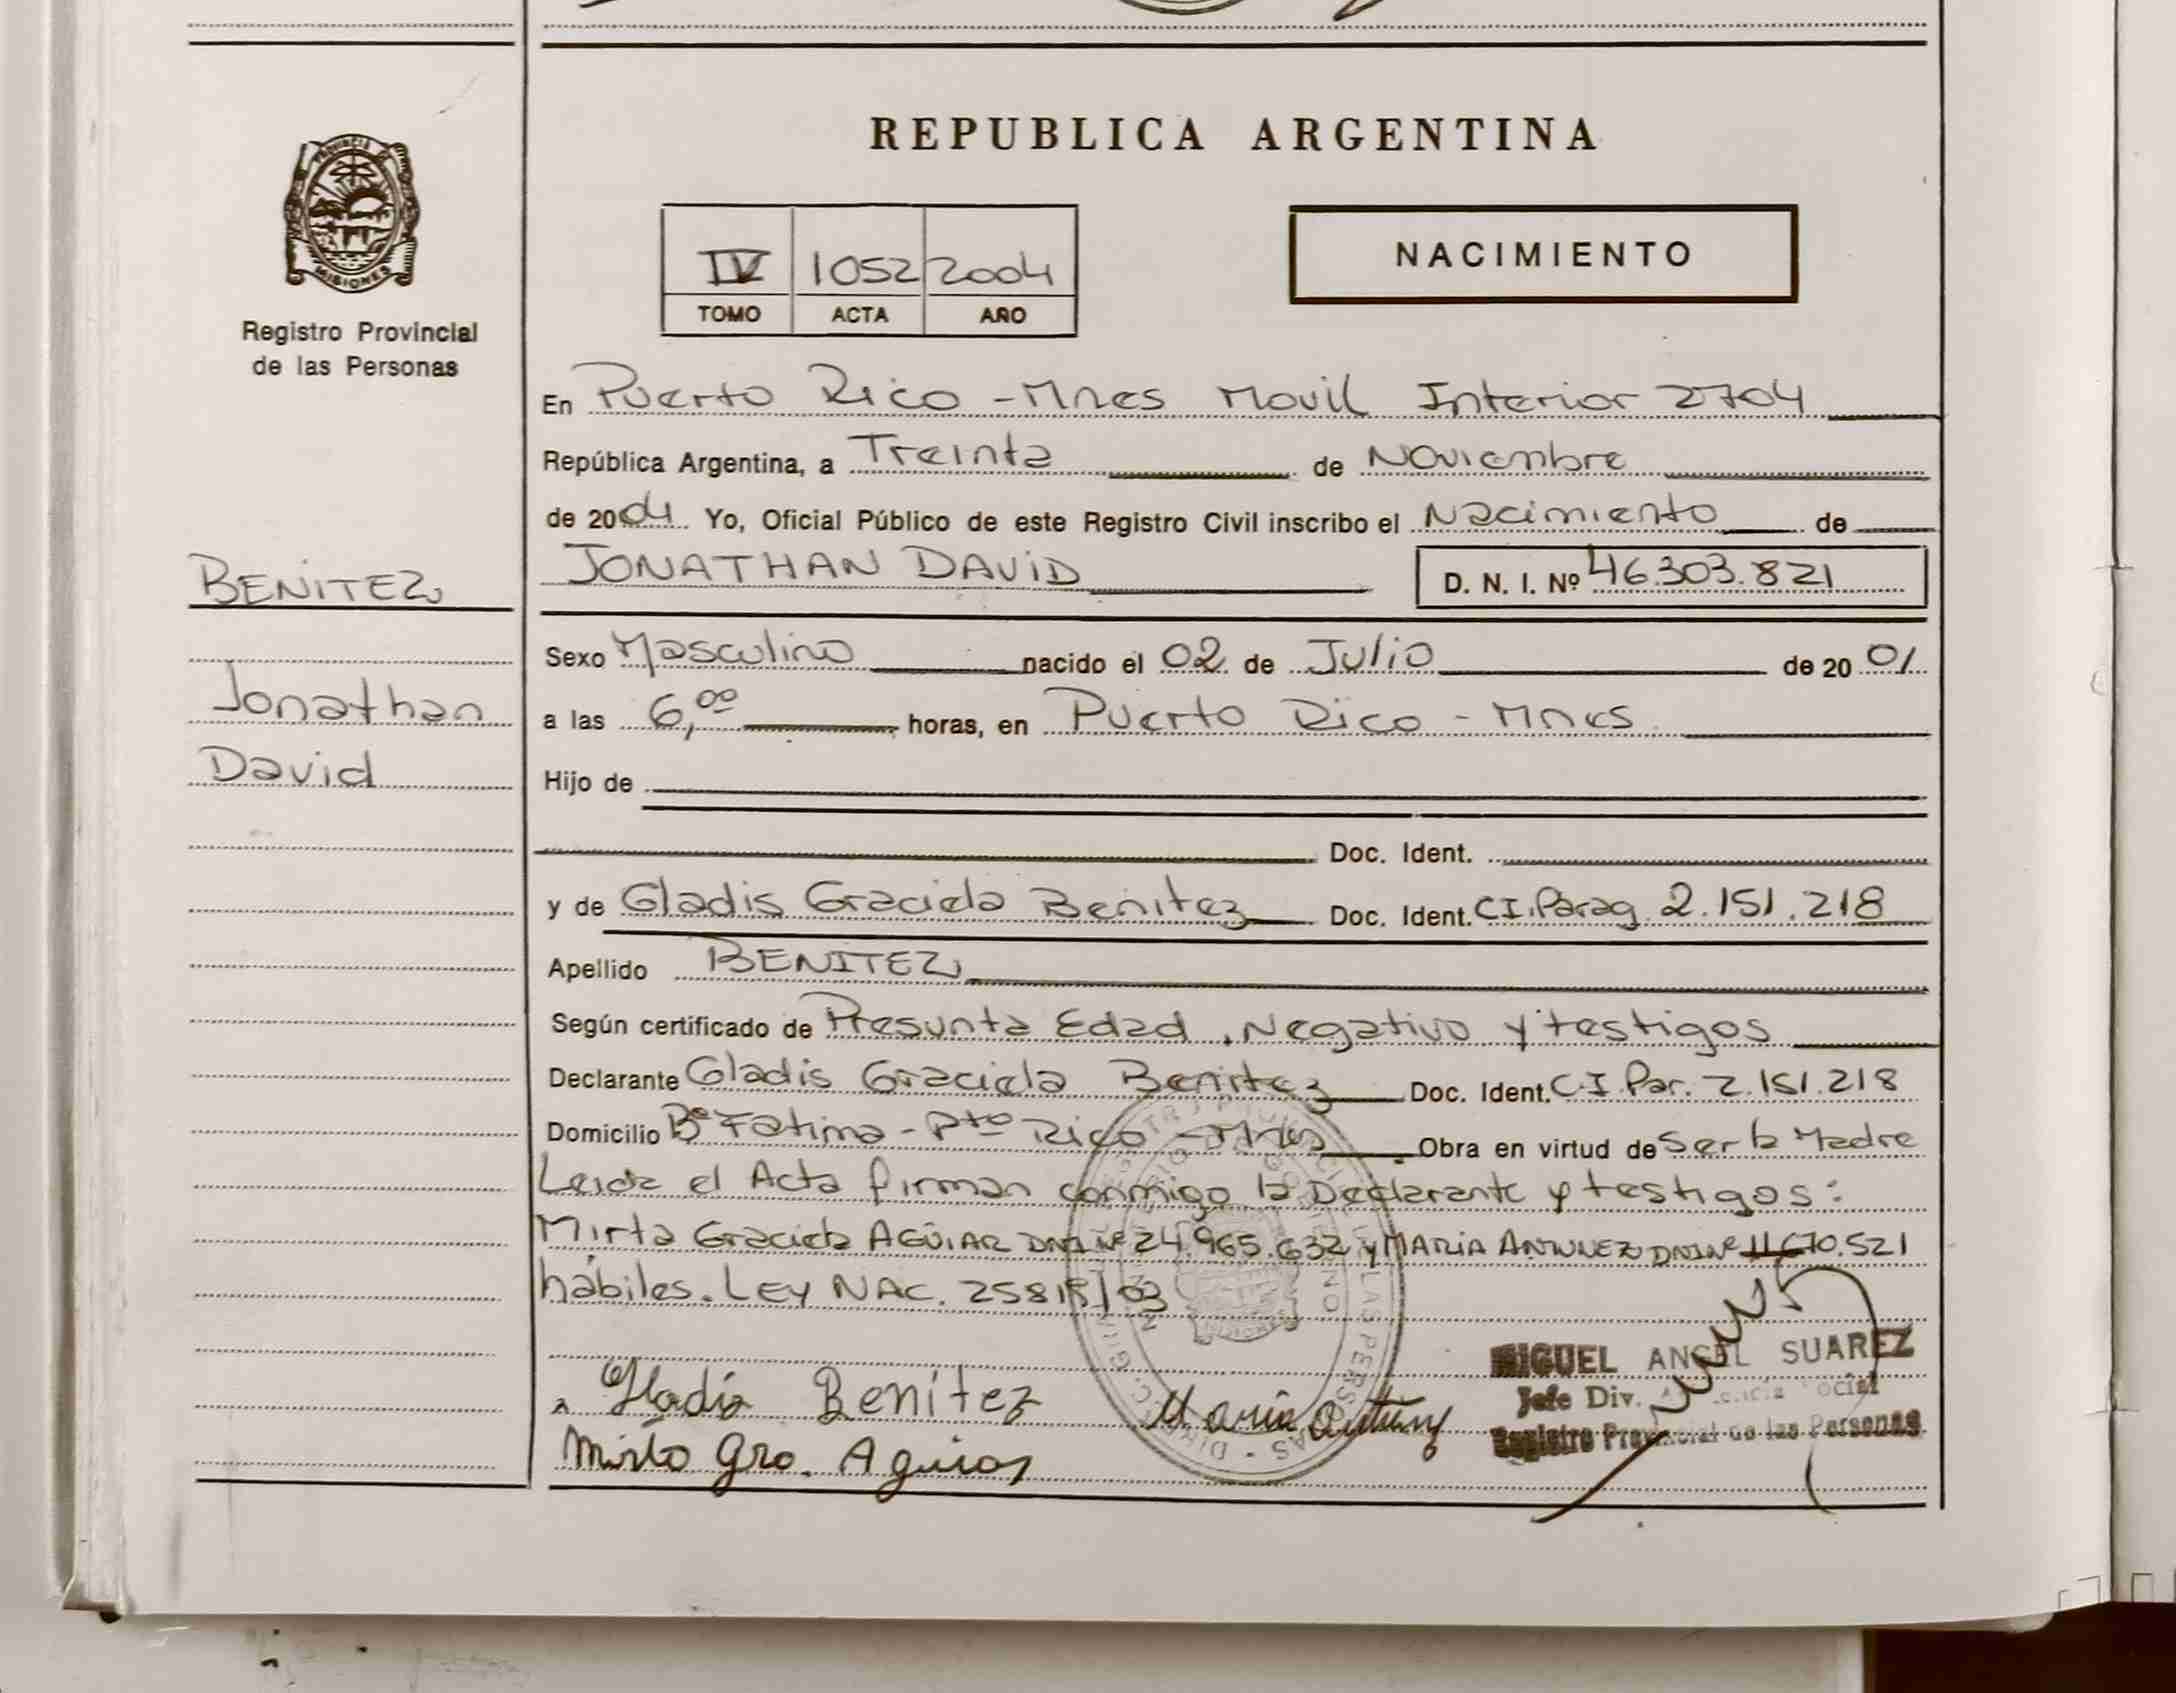 PROVINCIA DE
MISIONES
Registro Provincial
de las Personas
BENITEZ
Jonathan
David
REPUBLICA ARGENTINA
IV 1052 2004
TOMO ACTA AÑO
NACIMIENTO
En Puerto Rico - Mnes Movil Interior 2704
República Argentina, a Treinta de Noviembre
de 2004 Yo, Oficial Público de este Registro Civil inscribo el Nacimiento de
JONATHAN DAVID D. N. I. Nº 46.303.821
Sexo Masculino nacido el 02 de Julio de 20 01
a las 6,00 horas, en Puerto Rico - Mnes
Hijo de
Doc. Ident.
y de Gladis Graciela Benitez Doc. Ident. CI. Parag 2.151.218
Apellido BENITEZ
Según certificado de Presunta Edad, Negativo y testigos
Declarante Gladis Graciela Benitez Doc. Ident. C I Par. 2.151.218
Domicilio Bº Fatima - Pto Rico - Mnes Obra en virtud de Ser la Madre
Leida el Acta firman conmigo la Declarante y testigos:
Mirta Graciela AGUIAR DNI Nº 24.965.632 y MARIA ANTUNEZ DNI Nº 11.670.521
hábiles. LEY NAC. 25819/03
Gladis Benítez María Antunez
Mirta Gra. Aguiar
MIGUEL ANGEL SUAREZ
Jefe Div.
Registro Provincial de las Personas